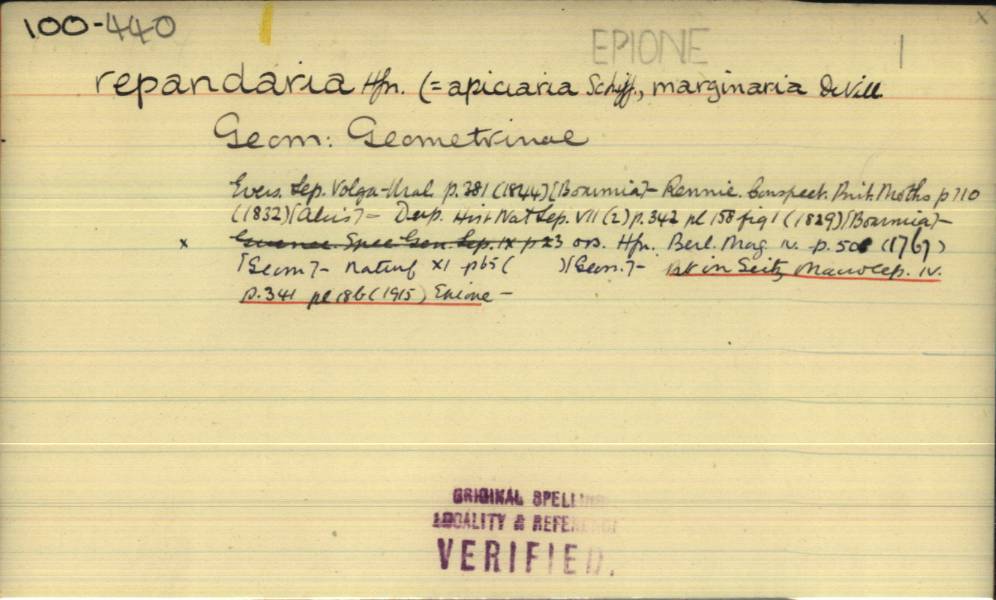 100-440
EPIONE 1
repandaria Hfn. (= apiciaria Schiff., marginaria DeVill
Geom: Geometrinae
Evers. Lep. Volga-Ural p.381 (1844) [Boarmia] - Rennie. Conspect. Brit. Moths p 110
(1832) [Alcis] - Dup. Hist Nat Lep. VII (2) p. 342 pl 158 fig 1 (1829) [Boarmia] -
x Guenee Spec Gen. Lep. IX p 23 ors. Hfn. Berl. Mag. iv. p. 506 (1767)
[Geom] - Naturf XI p65 ( ) [Geom.] - in Seitz Macrolep. iv.
p. 341 pl 18b (1915) Epione -
ORIGINAL SPELLING
LOCALITY & REFERENCE
VERIFIED.